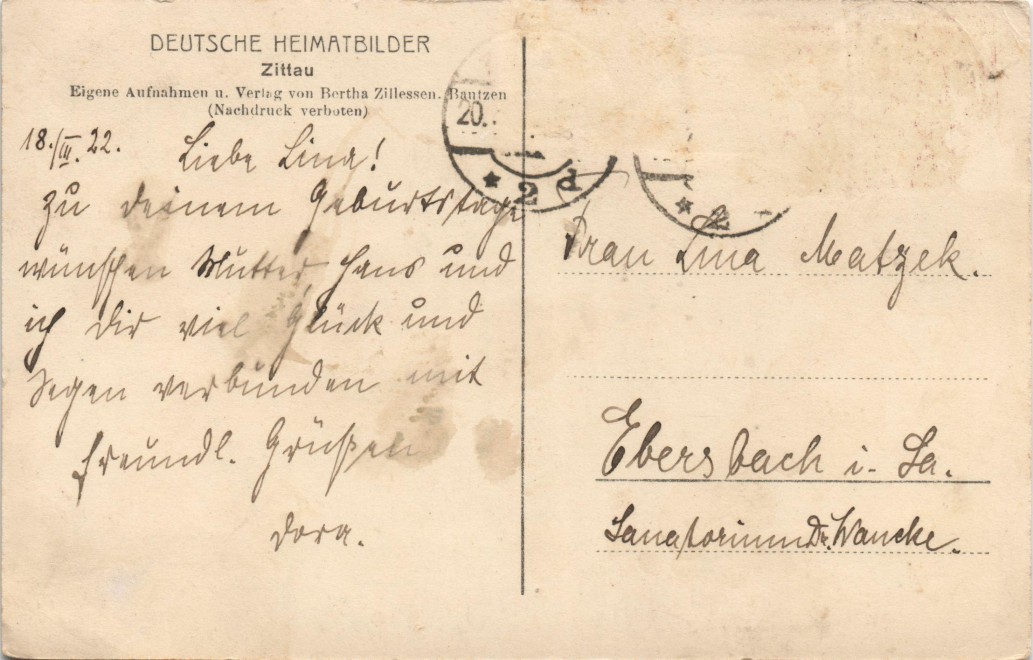 DEUTSCHE HEIMATBILDER
Zittau
Eigene Aufnahmen u. Verlag von Bertha Zillessen. Bautzen
(Nachdruck verboten)
18./III.22.
Liebe Lina!
Zu deinem Geburtstage
wünschen Mutter, Hans und
ich dir viel Glück und
Segen verbunden mit
freundl. Grüßen
Dora.
20.
* 2 d
* 2
Frau Lina Matzek.
Ebersbach i. Sa.
Sanatorium Dr. Wancke.